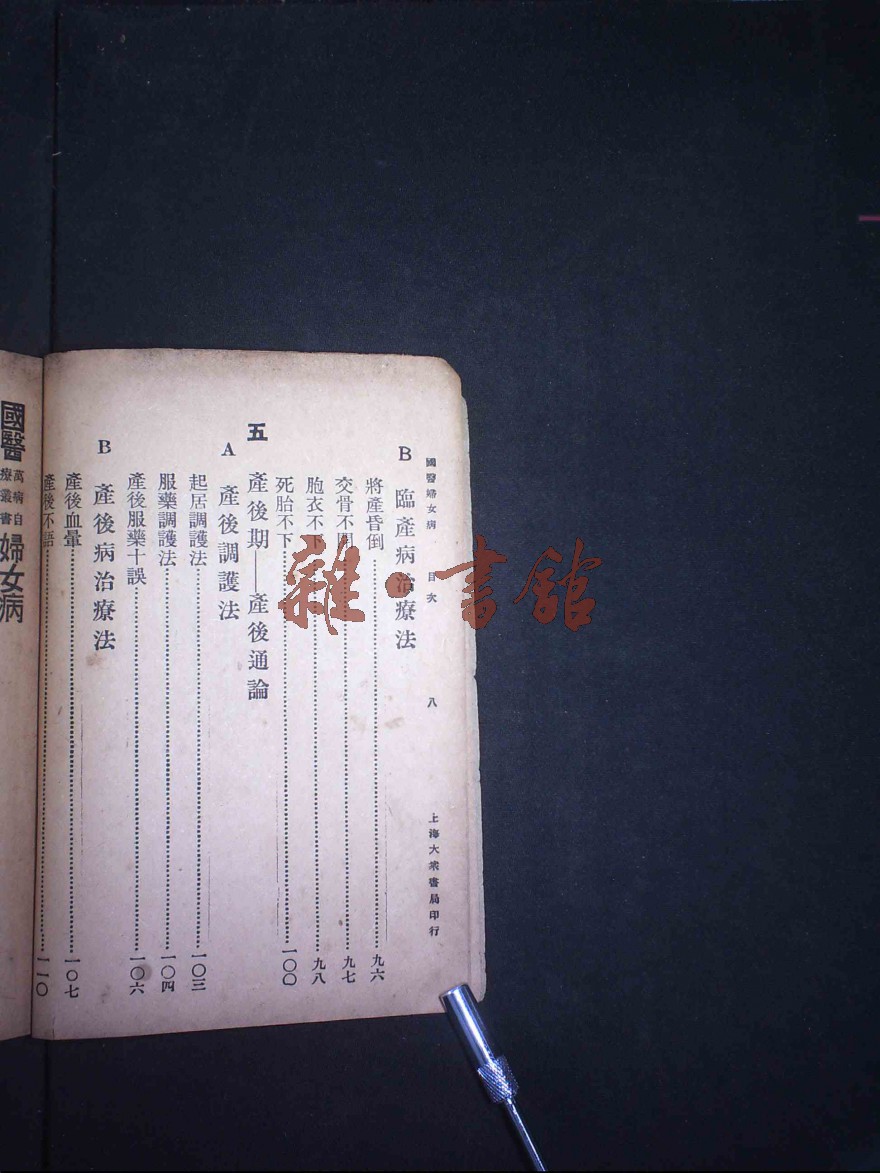 國醫婦女病 目次 八 上海大衆書局印行
B 臨產病治療法
將產昏倒……九六
交骨不開……九七
胞衣不下……九八
死胎不下……一〇〇
五 產後期——產後通論
A 產後調護法
起居調護法……一〇三
服藥調護法……一〇四
產後服藥十誤……一〇六
B 產後病治療法
產後血暈……一〇七
產後不語……一一〇
國醫萬病自療叢書 婦女病
雜·書館